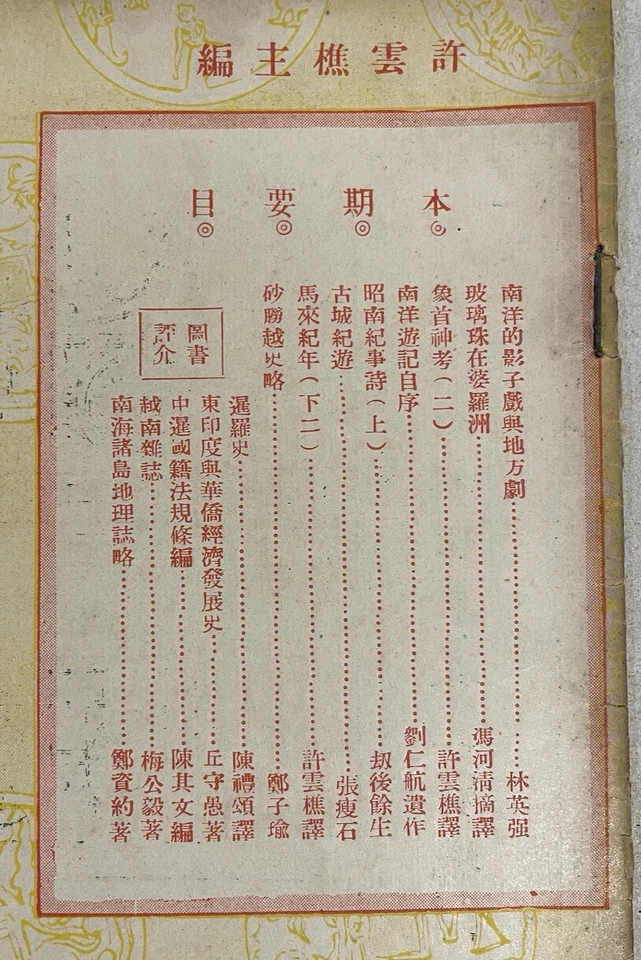 許雲樵主編
本期要目
南洋的影子戲與地方劇……林英强
玻璃珠在婆羅洲……馮河清摘譯
象首神考(二)……許雲樵譯
南洋遊記自序……劉仁航遺作
昭南紀事詩(上)……刼後餘生
古城紀遊……張瘦石
馬來紀年(下二)……許雲樵譯
砂勝越史略……鄭子瑜
圖書評介
暹羅史……陳禮頌譯
東印度與華僑經濟發展史……丘守愚著
中暹國籍法規條編……陳其文編
越南雜誌……梅公毅著
南海諸島地理誌略……鄭資約著